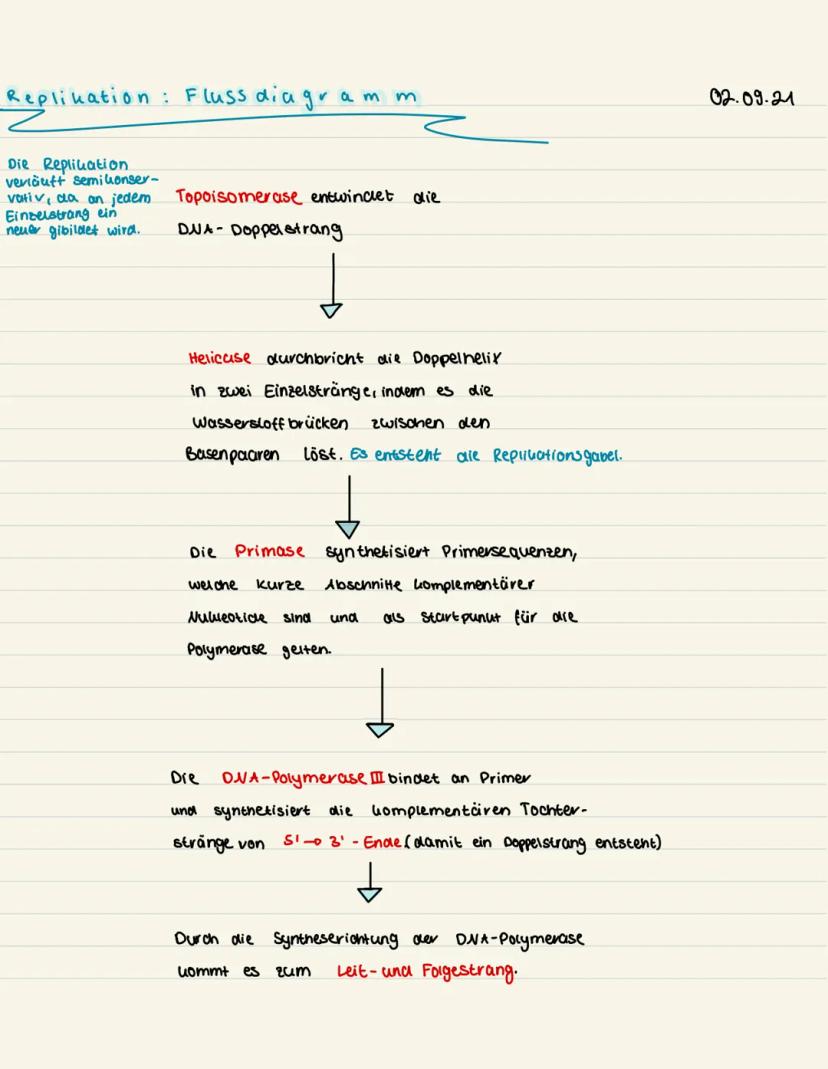 Replikation: Flussdiagramm
02.09.21
Die Replikation
verläuft semikonser-
vativ, da an jedem
Einzelstrang ein
neuer gibildet wird.
Topoisomerase entwindet die
DNA-Doppelstrang
Helicase durchbricht die Doppelhelix
in zwei Einzelstränge, indem es die
Wasserstoffbrücken zwischen den
Basenpaaren löst. Es entsteht die Replikationsgabel.
Die Primase synthetisiert Primersequenzen,
welche kurze Abschnitte komplementärer
Nukleotide sind und als Startpunkt für die
Polymerase gelten.
Die DNA-Polymerase III bindet an Primer
und synthetisiert die komplementären Tochter-
stränge von 5' → 3' - Ende (damit ein Doppelstrang entsteht)
Durch die Syntheserichtung der DNA-Polymerase
kommt es zum Leit- und Folgestrang.